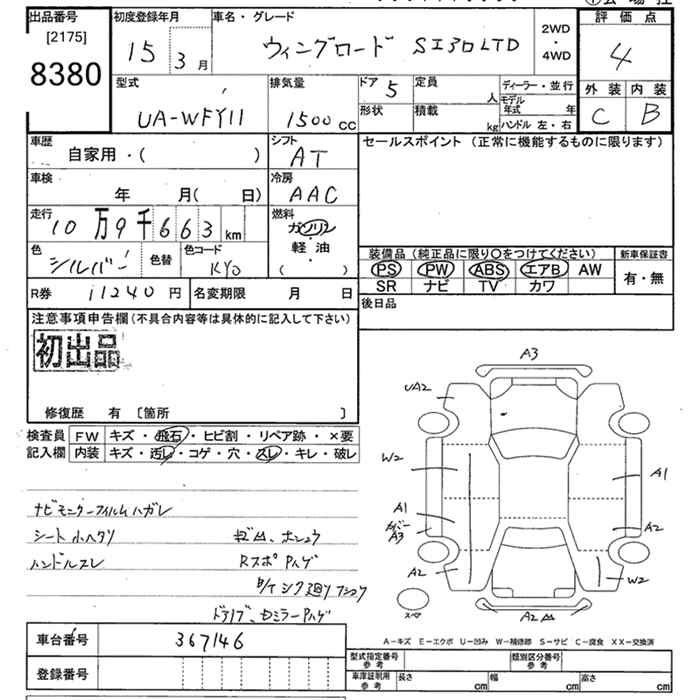 出品番号 初度登録年月 車名・グレード 2WD ・ 4WD 評価点
[2175]
8380 15 3月 ウィングロード SエヨロLTD 4
型式 排気量 ドア 5 定員 人 ディーラー・並行 外装 内装
UA-WFY11 1500cc 形状 積載 kg モデル年式 年 ハンドル 左・右 C B
車歴 自家用・( ) シフト AT セールスポイント (正常に機能するものに限ります)
車検 年 月( 日) 冷房 AAC
走行 10万9千663km 燃料 ガソリン
軽・油
( )
色 シルバー 色替 色コード KY0
装備品 (純正品に限り〇をつけてください) 新車保証書
PS PW ABS エアB AW 有・無
SR ナビ TV カワ
R券 11240円 名変期限 月 日 後日品
注意事項申告欄(不具合内容等は具体的に記入して下さい)
初出品
修復歴 有 [箇所 ]
検査員 FW キズ・飛石・ヒビ割・リペア跡・×要
記入欄 内装 キズ・汚レ・コゲ・穴・スレ・キレ・破レ
A3
UA2
W2
A1
A1
A3
A2
A2
W2
A2
スペア
ナビモニターフィルムハガレ
シート小ヘタリ
ハンドルスレ RスポPハゲ
車台番号 367146
登録番号
A-キズ E-エクボ U-凹み W-補修跡 S-サビ C-腐食 XX-交換済
型式指定番号 参考 類別区分番号 参考
車庫証明用 参考 長さ cm 幅 cm 高さ cm